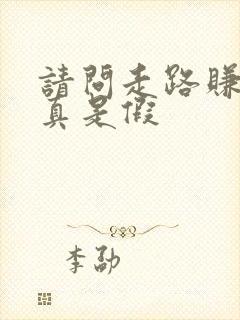 請問走路賺
真是假
李勐